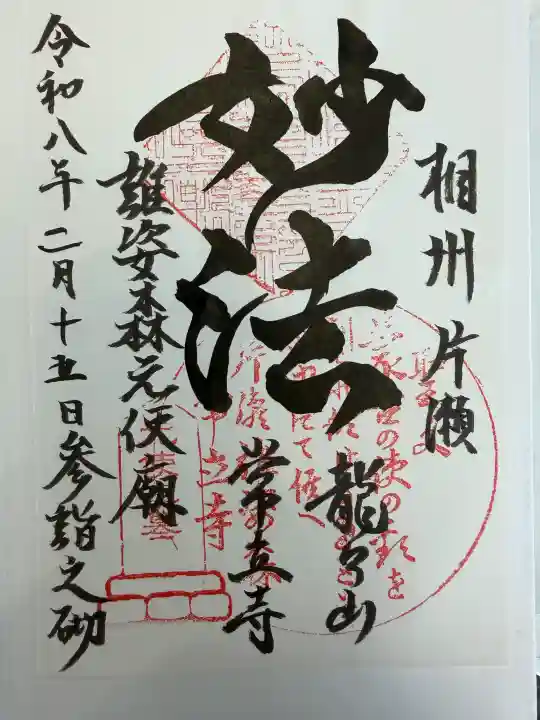 相州 片瀬
龍口山
妙法
常立寺
誰姿森元使廟
令和八年二月十五日参詣之砌